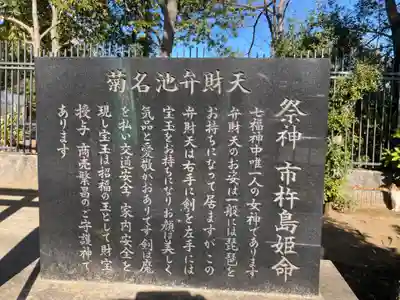 菊名池弁財天
祭神 市杵島姫命
七福神中唯一人の女神であります
弁財天のお姿は一般には琵琶を
お持ちになって居ますがこの
弁財天は右手に剣を左手には
宝玉をお持ちになりお顔は美しく
気品と愛敬がおありです剣は魔
を払い交通安全 家内安全を
現し宝玉は招福の玉として財宝
授与 商売繁昌のご守護神で
あります